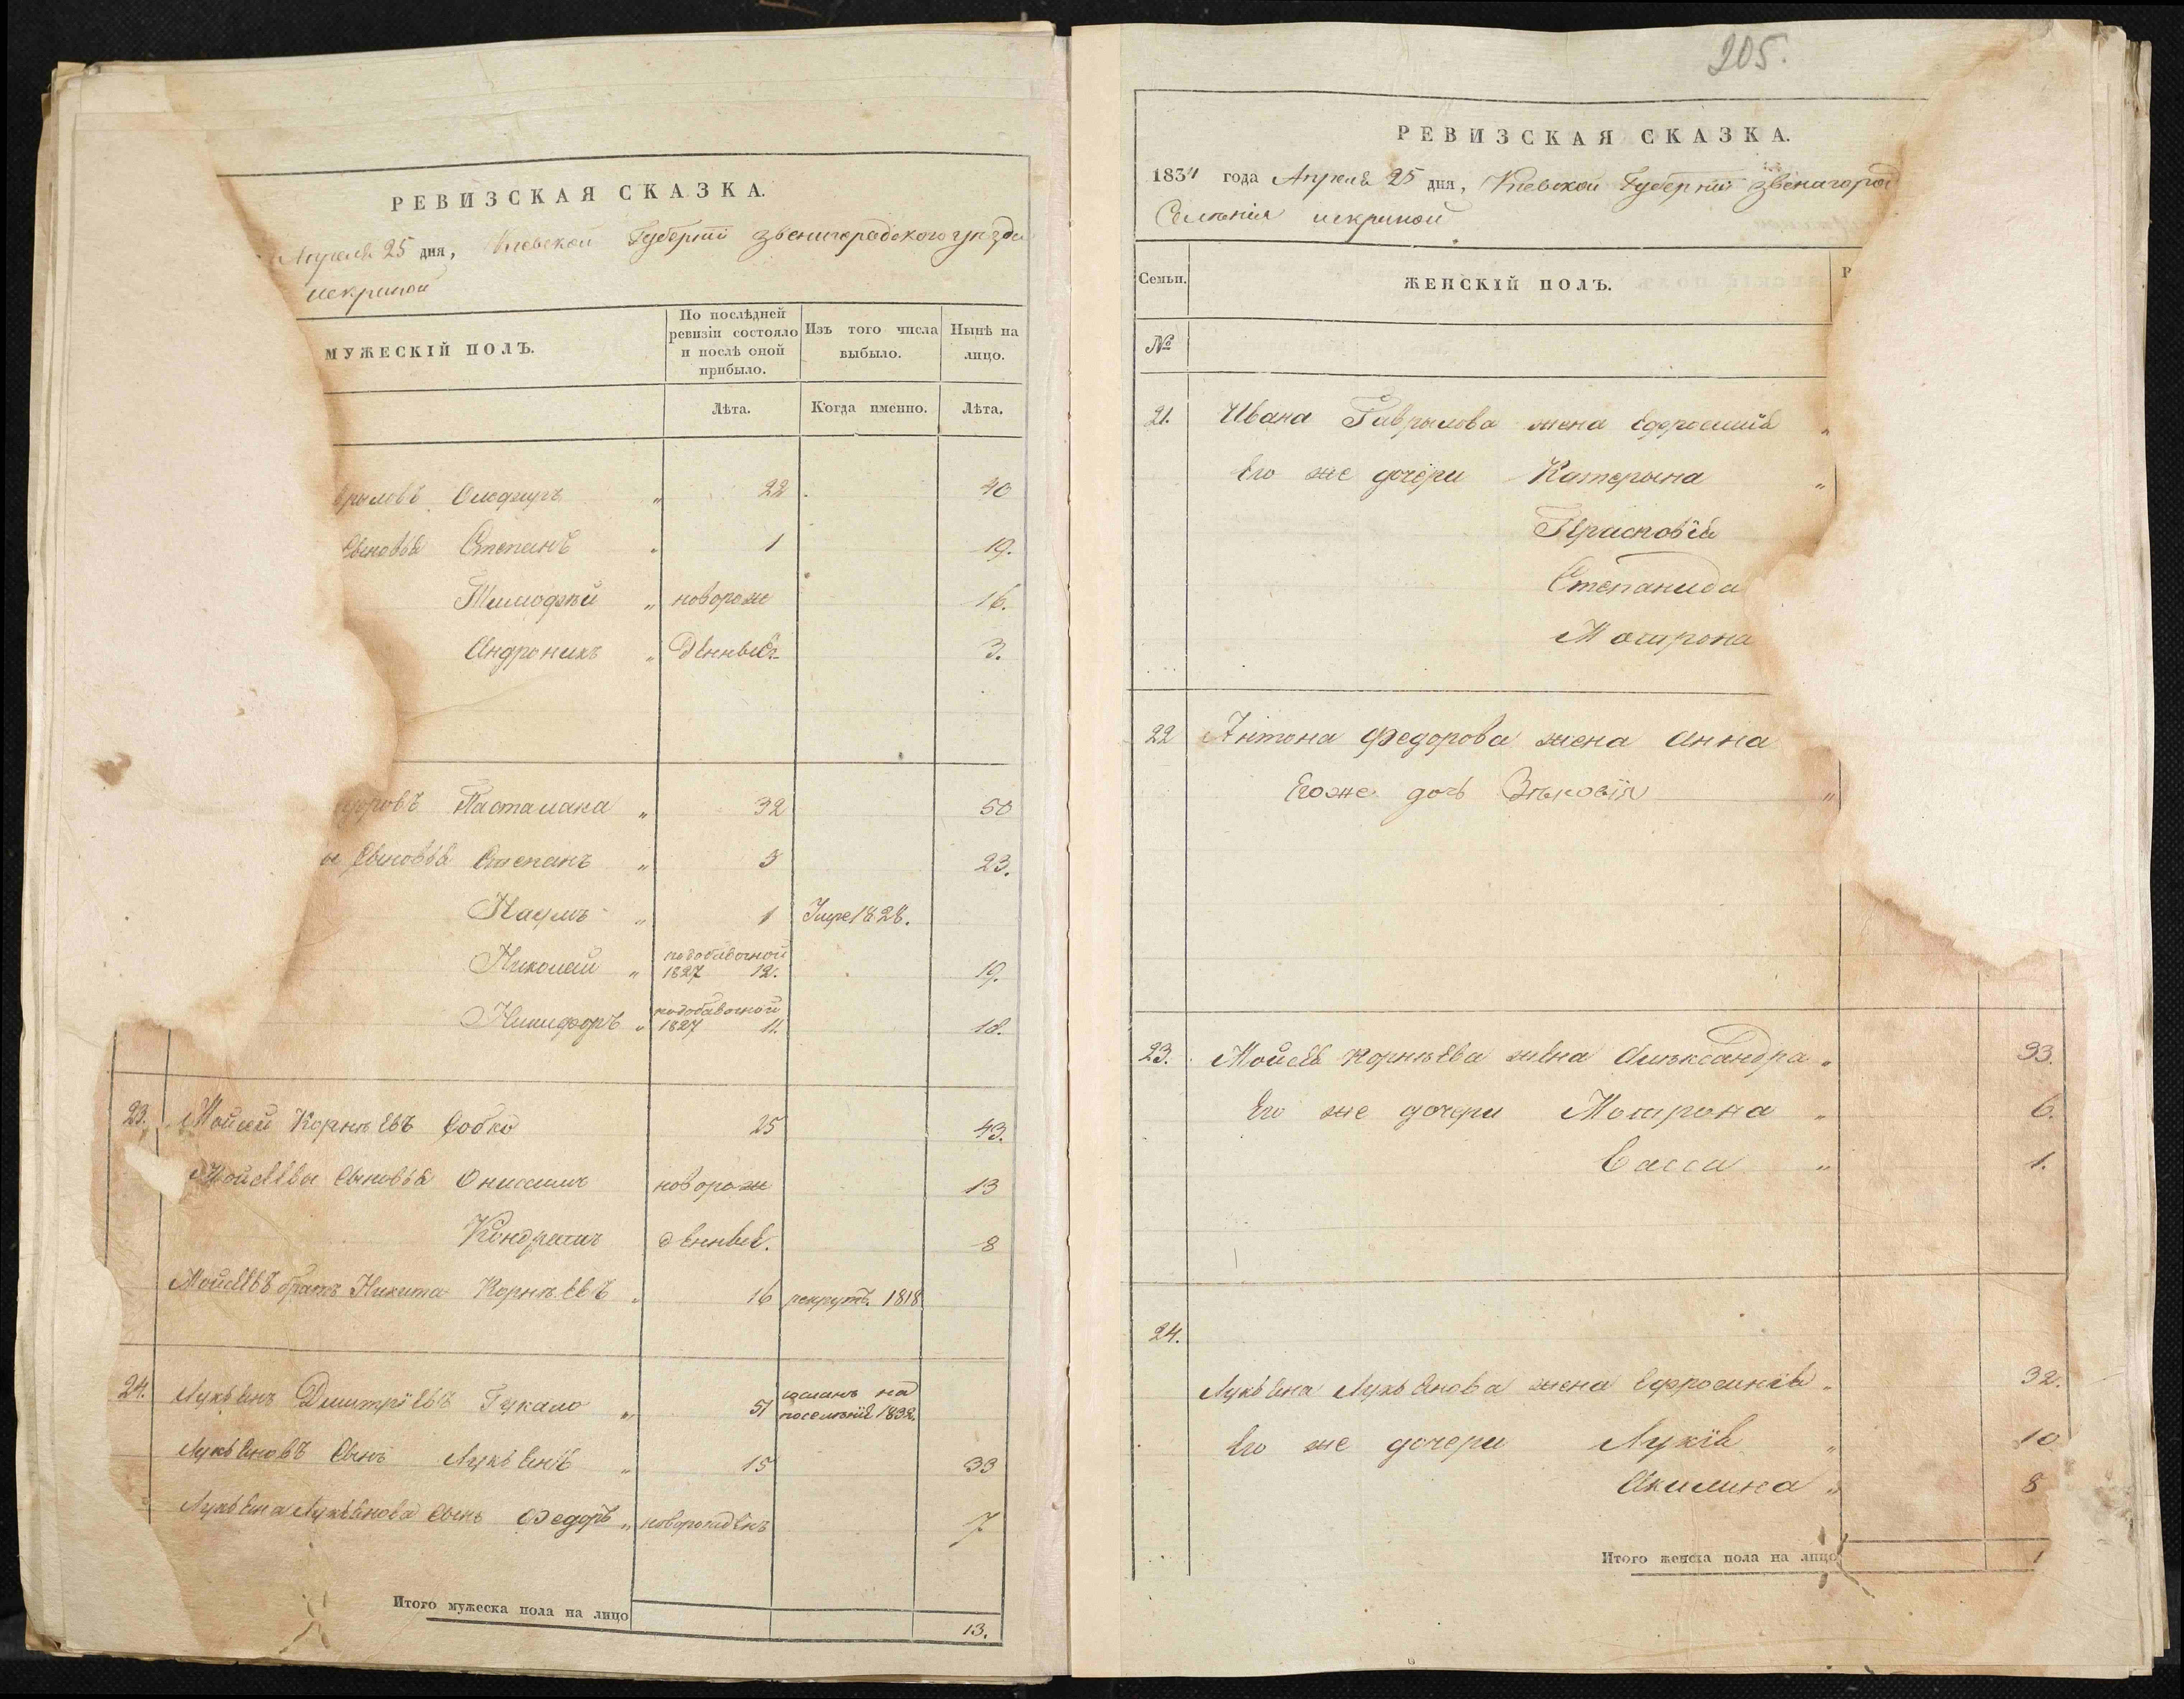 РЕВИЗСКАЯ СКАЗКА.
Апреля 25 дня, Киевской Губернiи звенигородского уезда
искриной
МУЖЕСКIЙ ПОЛЪ.
По послѣдней ревизiи состояло и послѣ оной прибыло.
Изъ того числа выбыло.
Нынѣ на лицо.
Лѣта.
Когда именно.
Лѣта.
22 40
Сыновья Степанъ „ 1 19.
Тимофѣй „ новорож 16.
Андроникъ „ денные 3.
32 50
Сыновья Степанъ „ 5 23.
Наумъ „ 1 Умре 1828.
Николай „ подобавочной 1827 12. 19.
Никифоръ „ подобавочной 1827 11. 18.
23. Мойсей Корнѣевъ Собко 25 43.
Мойсеевы Сыновья Онисимъ новорож 13
Кондратъ денные. 8
Мойсеевъ братъ Никита Корнѣевъ „ 16 рекрутъ 1818
24. Лукьянъ Дмитрiевъ Гукало „ 51 сосланъ на поселѣнiе 1832.
Лукьяновъ Сынъ Лукьянъ „ 15 33
Лукьяна Лукьянова Сынъ Федоръ „ новорожденъ 7
Итого мужеска пола на лицо
13.
205.
РЕВИЗСКАЯ СКАЗКА.
1834 года Апреля 25 дня, Киевской Губернiи звенагород
Селѣнiя искриной
Семьи.
ЖЕНСКIЙ ПОЛЪ.
Р
№
21. Ивана Гаврылова жена Ефросинiя „
Его же дочери Катерына „
Прасковiя
Степанида
Мотрона
22 Антона Федорова жена Анна
Его же дочь Зѣновiя „
23. Мойсея Корнѣева жена Алѣксандра „ 33.
Его же дочери Мотрона „ 6.
Васса „ 1.
24.
Лукьяна Лукьянова жена Ефросинiя „ 32.
Его же дочери Лукiя „ 10
Акилина „ 8
Итого женска пола на лицо
1